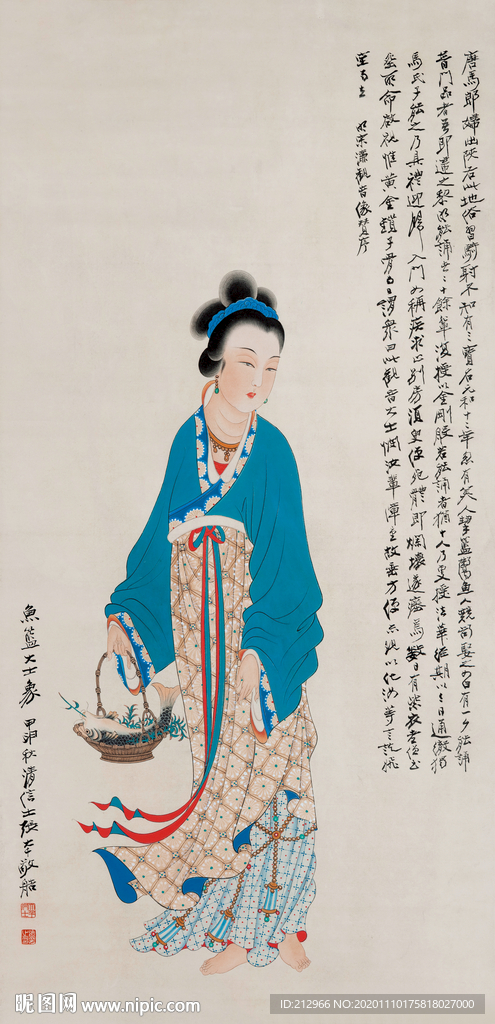 唐馬郎婦出陝右此地俗習騎射不知有三寶石元和十二年忽有美人挈籃鬻魚人競尚娶之曰有一夕能誦
普門品者吾即遣之黎明能誦者二十餘輩復授以金剛般若能誦者猶十人乃更授法華經期以三日通徹獨
馬氏子能之乃具禮迎歸入門即稱疾求止別房須臾便死體即爛壞遂瘞焉數日有紫衣老僧至
瘞所命啟視惟黃金鎖子骨而已謂眾曰此觀音大士憫汝輩障重故垂方便示現以化汝等言訖飛
空而去 明宋濂觀音像贊序
魚籃大士象 甲申秋清信士張大千敬繪
昵图网 www.nipic.com
ID:212966 NO:20201110175818027000